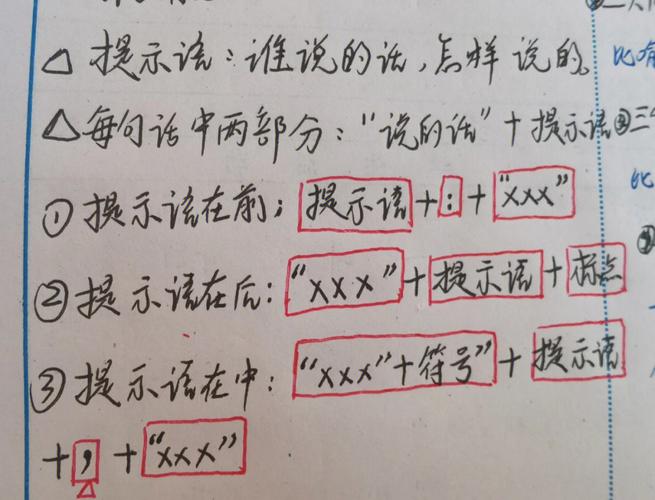 △ 提示语:谁说的话,怎样说的。
△每句话中两部分:“说的话”+提示语
①提示语在前:提示语+:+“xxx”
②提示语在后:“xxx”+提示语+标点
③提示语在中:“xxx”+符号”+提示语
+,+“xxx”
比
②三
比